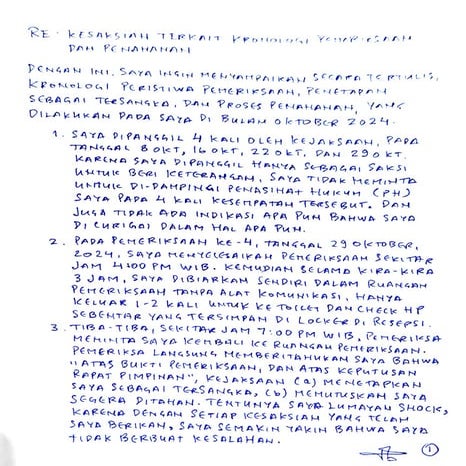 RE: KESAKSIAN TERKAIT KRONOLOGI PEMERIKSAAN
DAN PENAHANAN
DENGAN INI, SAYA INGIN MENYAMPAIKAN SECARA TERTULIS,
KRONOLOGI PERISTIWA PEMERIKSAAN, PENETAPAN
SEBAGAI TERSANGKA, DAN PROSES PENAHANAN, YANG
DILAKUKAN PADA SAYA DI BULAN OKTOBER 2024.
1. SAYA DIPANGGIL 4 KALI OLEH KEJAKSAAN, PADA
TANGGAL 8 OKT, 16 OKT, 22 OKT. DAN 29 OKT.
KARENA SAYA DIPANGGIL HANYA SEBAGAI SAKSI
UNTUK BERI KETERANGAN, SAYA TIDAK MEMINTA
UNTUK DI-DAMPINGI PENASIHAT HUKUM (PH)
SAYA PADA 4 KALI KESEMPATAN TERSEBUT. DAN
JUGA TIDAK ADA INDIKASI APA PUN BAHWA SAYA
DI CURIGAI DALAM HAL APA PUN.
2. PADA PEMERIKSAAN KE-4, TANGGAL 29 OKTOBER,
2024, SAYA MENYELESAIKAN PEMERIKSAAN SEKITAR
JAM 4:00 PM WIB. KEMUDIAN SELAMA KIRA-KIRA
3 JAM, SAYA DIBIARKAN SENDIRI DALAM RUANGAN
PEMERIKSAAN TANPA ALAT KOMUNIKASI, HANYA
KELUAR 1-2 KALI UNTUK KE TOILET DAN CHECK HP
SEBENTAR YANG TERSIMPAN DI LOCKER DI RESEPSI.
3. TIBA-TIBA, SEKITAR JAM 7:00 PM WIB, PEMERIKSA
MEMINTA SAYA KEMBALI KE RUANGAN PEMERIKSAAN.
PEMERIKSA LANGSUNG MEMBERITAHUKAN SAYA BAHWA
"ATAS BUKTI PEMERIKSAAN, DAN ATAS KEPUTUSAN
RAPAT PIMPINAN", KEJAKSAAN (a) MENETAPKAN
SAYA SEBAGAI TERSANGKA, (b) MEMUTUSKAN SAYA
SEGERA DITAHAN. TENTUNYA SAYA LUMAYAN SHOCK,
KARENA DENGAN SETIAP KESAKSIAN YANG TELAH
SAYA BERIKAN, SAYA SEMAKIN YAKIN BAHWA SAYA
TIDAK BERBUAT KESALAHAN.
1